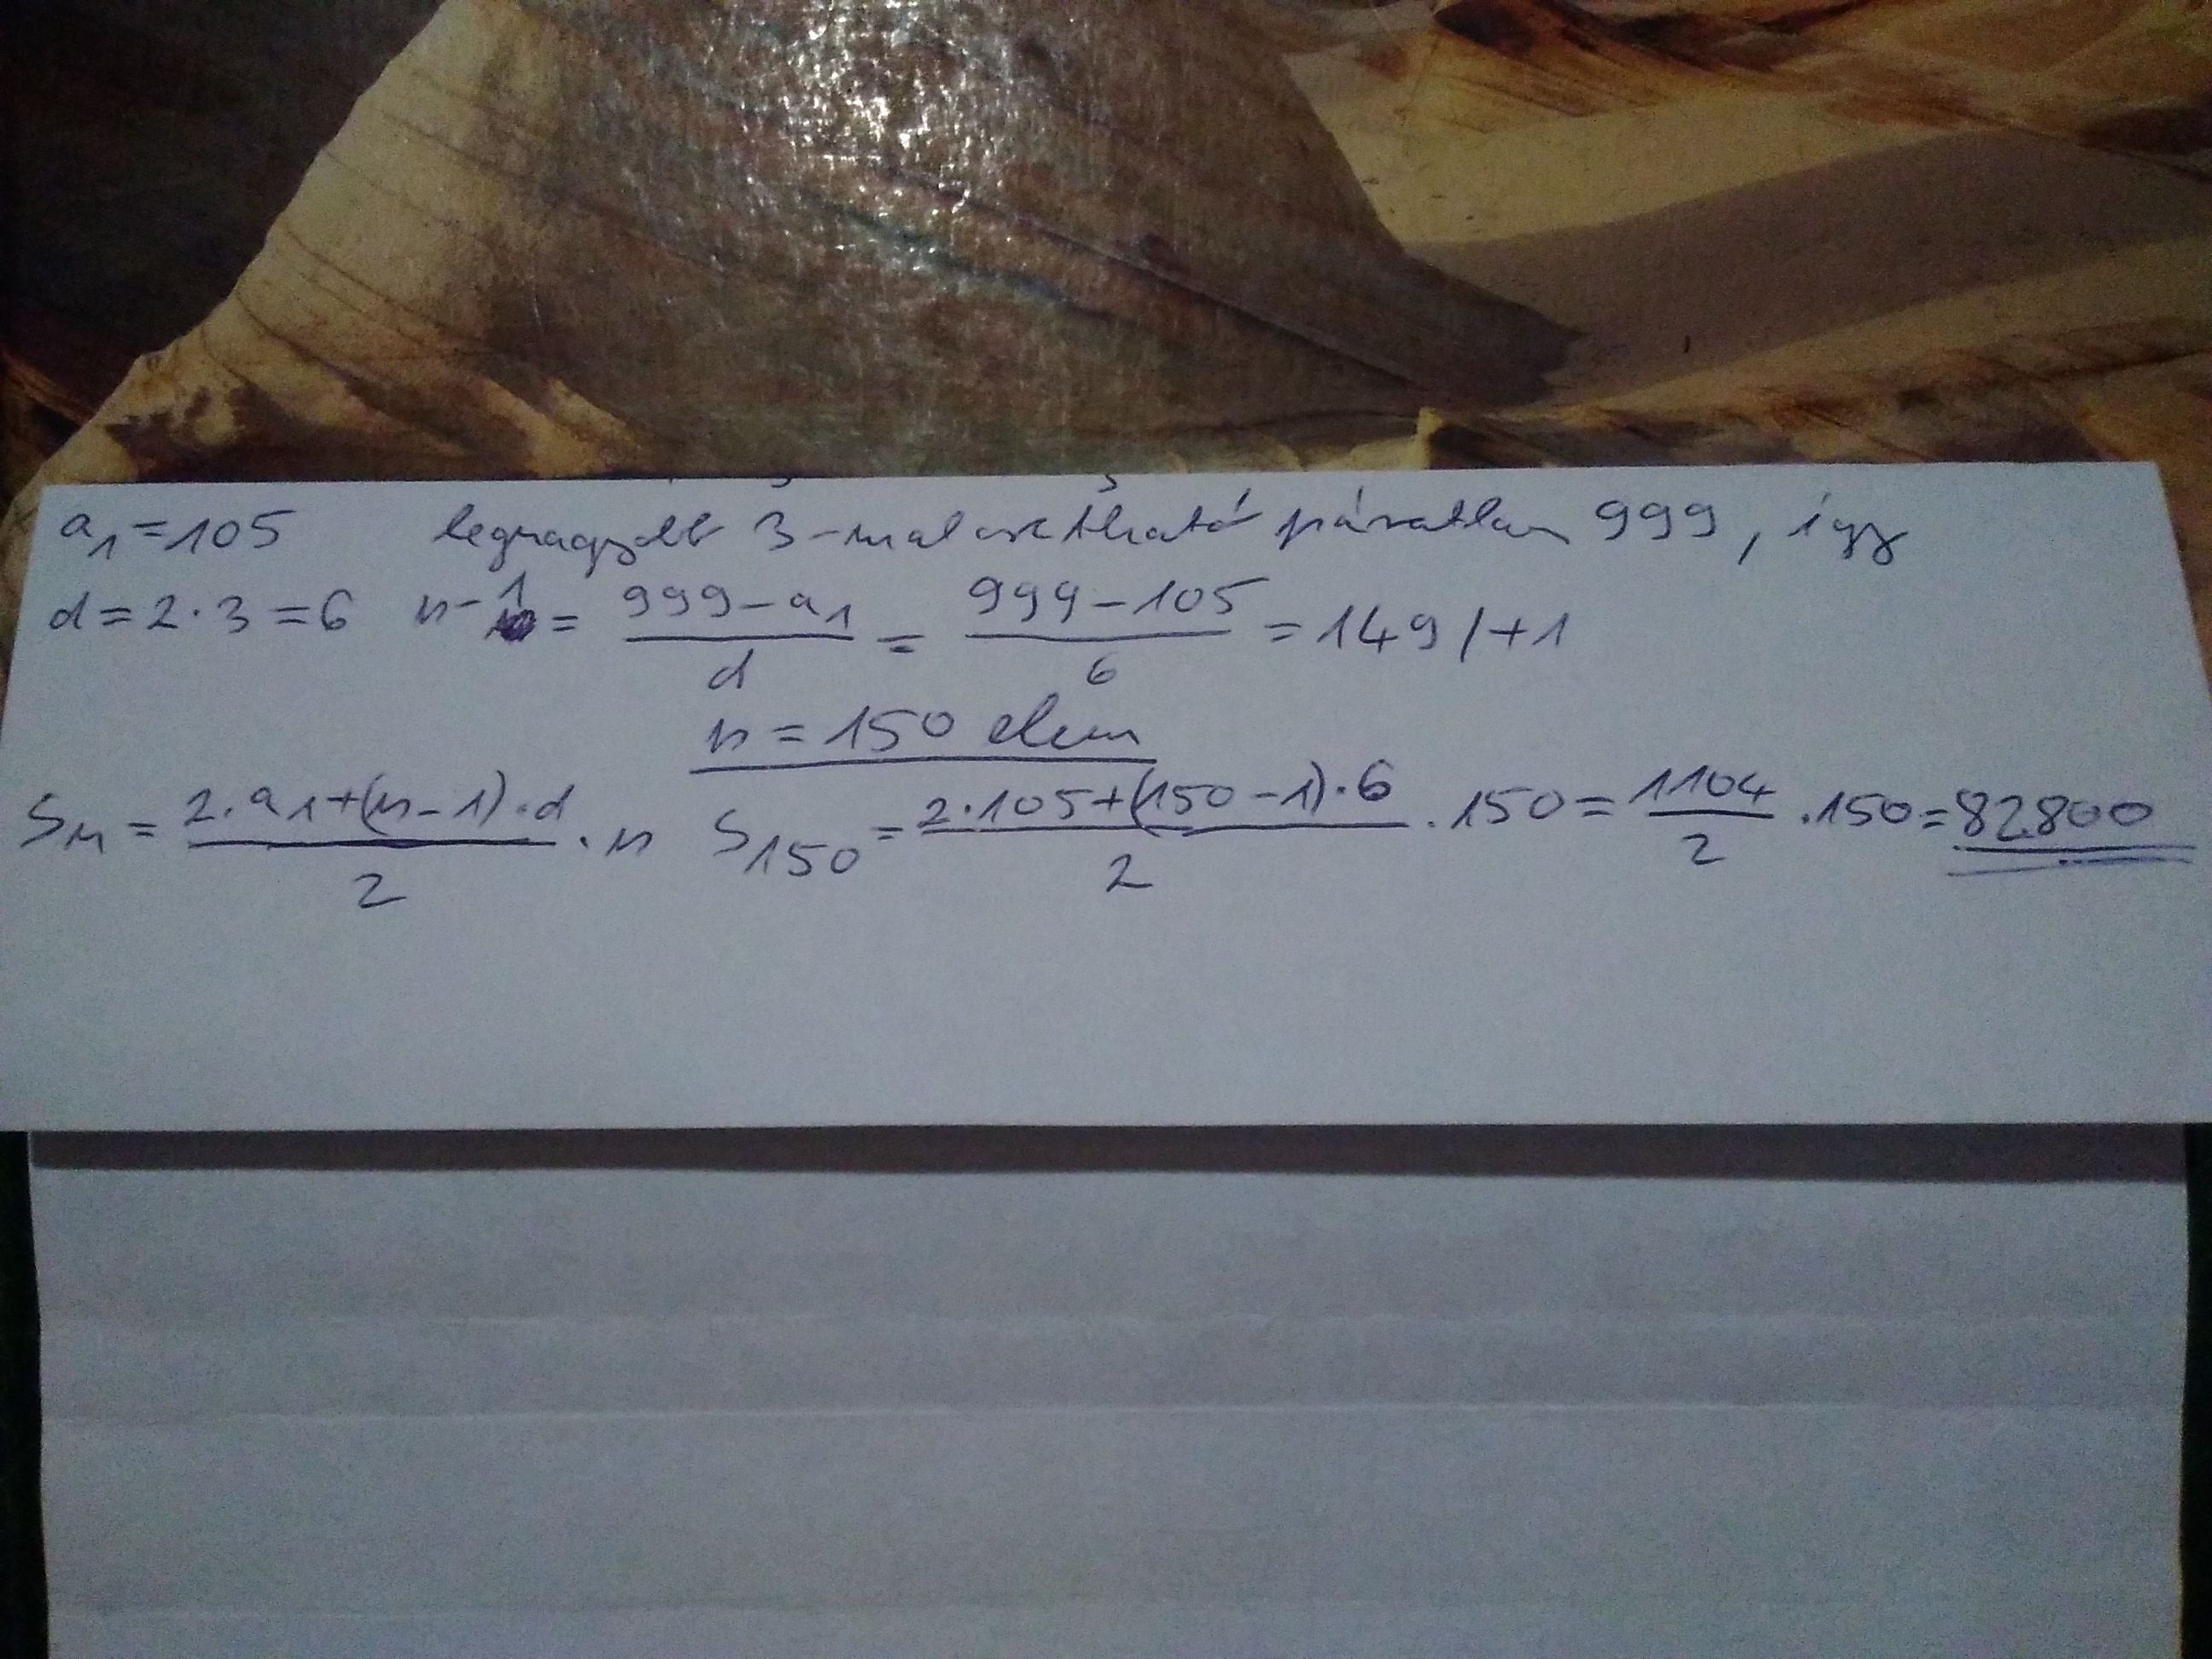 a₁=105 legnagyobb 3-mal osztható páratlan 999, így
d=2·3=6 n-1= (999-a₁)/d = (999-105)/6 =149 /+1
n=150 elem
Sₙ= (2·a₁+(n-1)·d)/2 ·n S₁₅₀= (2·105+(150-1)·6)/2 ·150= 1104/2 ·150=82800